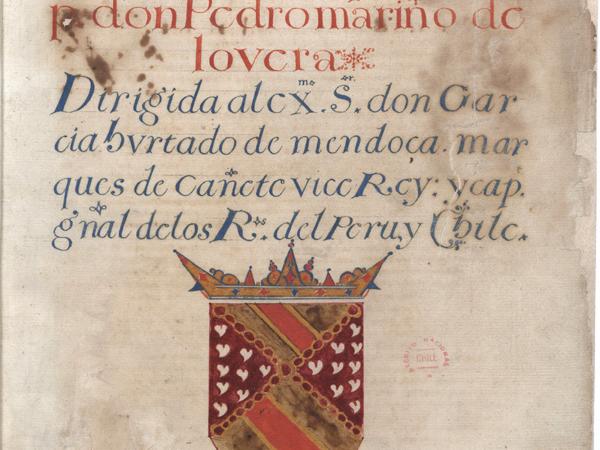 p. don Pedro mariño de
lovera
Dirigida al ex.mo S.or don Gar
cia hurtado de mendoça. mar
ques de cañete vice Rey: y cap.
gñal de los R.s del Peru y Chile.
CHILE